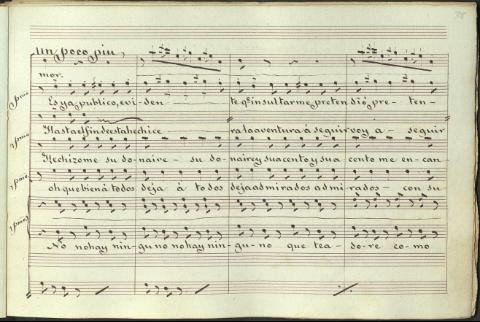 Un poco piu,
mor.
Es ya publico, evi- den- te qe insultarme pretendió, pre- ten-
Hasta el fin de esta hechice ra la aventura á seguir voy a- seguir
Hechizome su do- naire- su do- naire y su acento y su a cento me en-can
oh que bien á todos deja á todos deja admirados admi- rados- con su
No no hay nin- gu no no hay nin- gu- no que te a- do- re co- mo